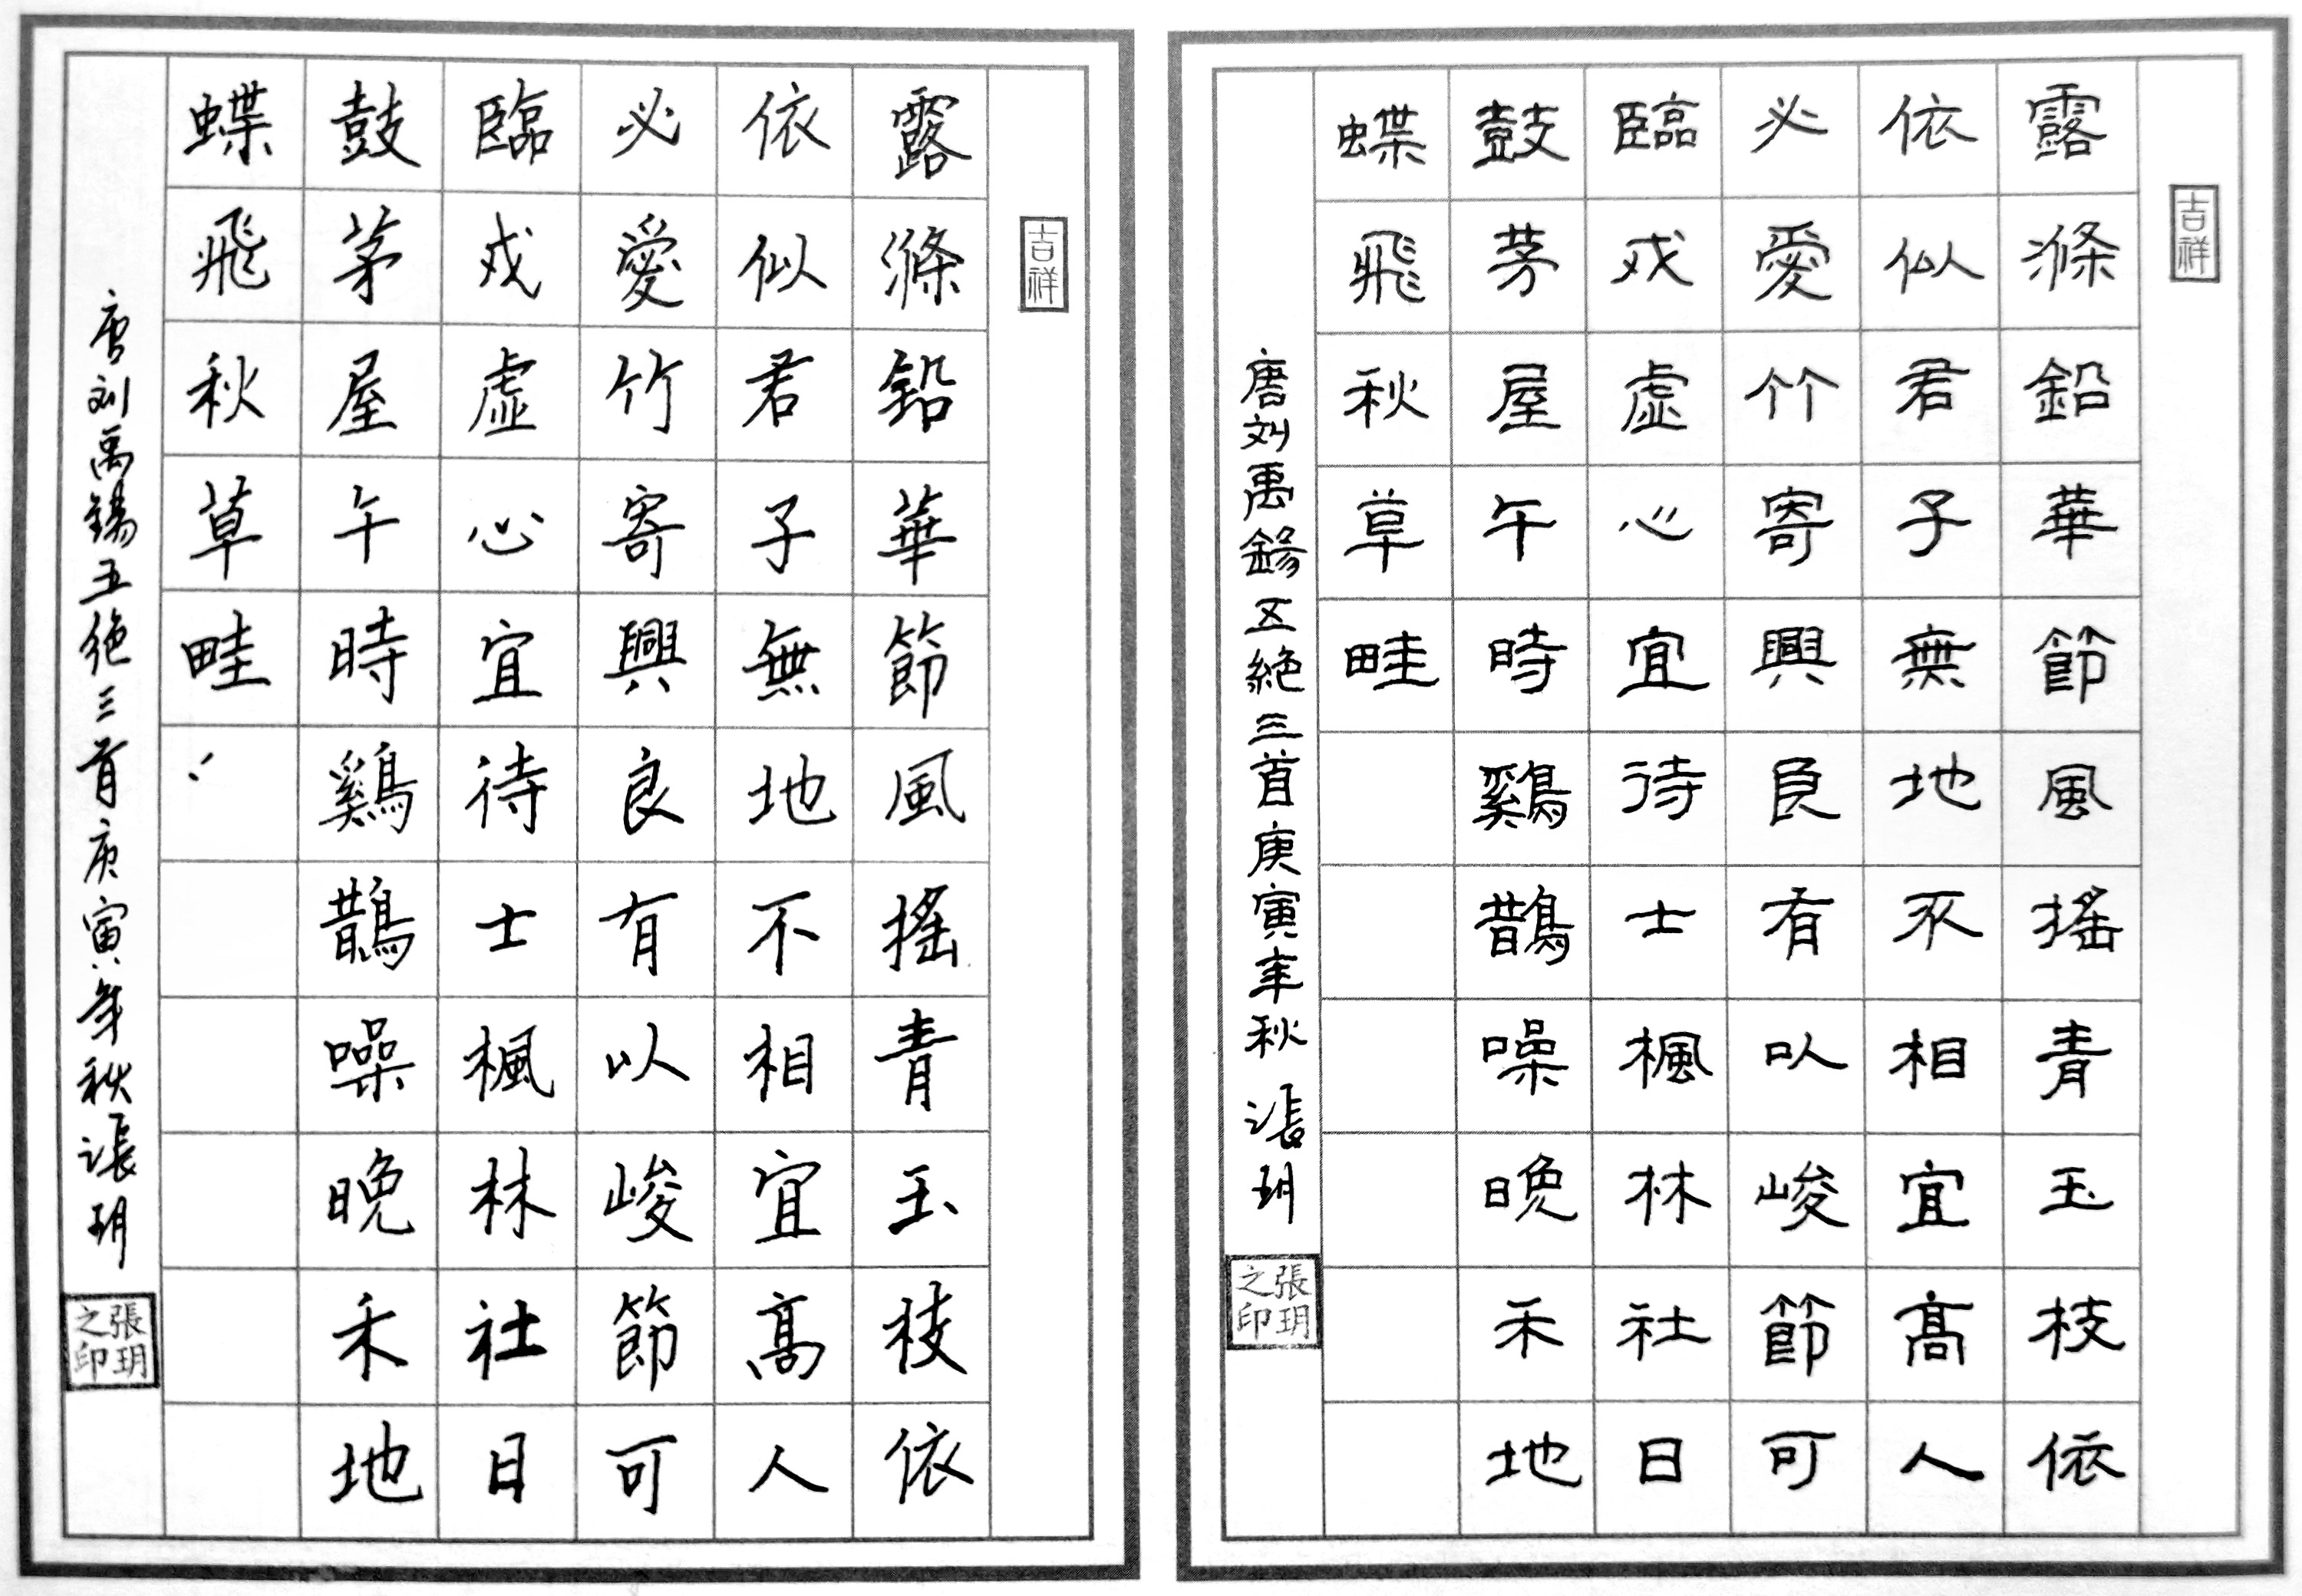 吉祥
露滌鉛華節風搖青玉枝依
依似君子無地不相宜高人
必愛竹寄興良有以峻節可
臨戎虛心宜待士楓林社日
鼓茅屋午時鷄鵲噪晚禾地
蝶飛秋草畦
唐刘禹錫五絶三首庚寅年秋 張玥
張玥之印
吉祥
露滌鉛華節風搖青玉枝依
依似君子無地不相宜高人
必愛竹寄興良有以峻節可
臨戎虛心宜待士楓林社日
鼓茅屋午時鷄鵲噪晚禾地
蝶飛秋草畦
唐刘禹錫五絶三首庚寅年秋張玥
張玥之印